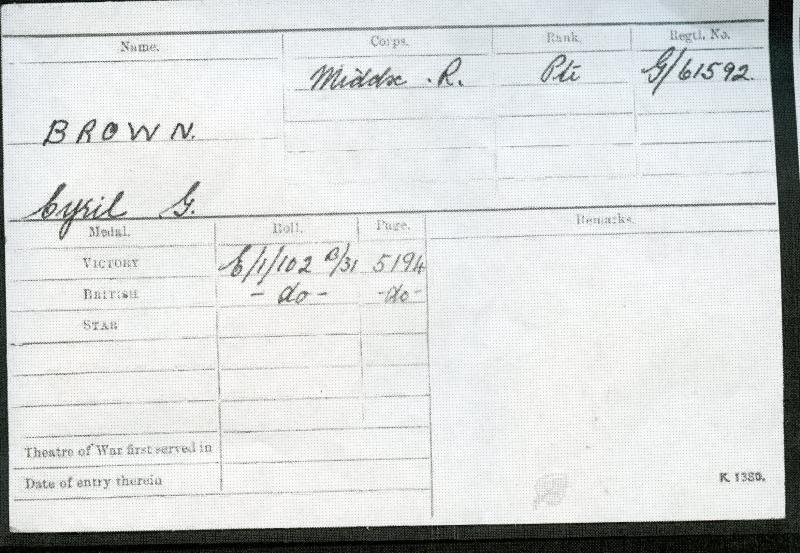 Name. Corps. Rank. Regtl. No.
Middx. R. Pte G/61592
BROWN.
Cyril G.
Medal. Roll. Page. Remarks.
VICTORY E/1/102 B/31 5194
BRITISH - do - -do-
STAR
Theatre of War first served in
Date of entry therein
K. 1380.